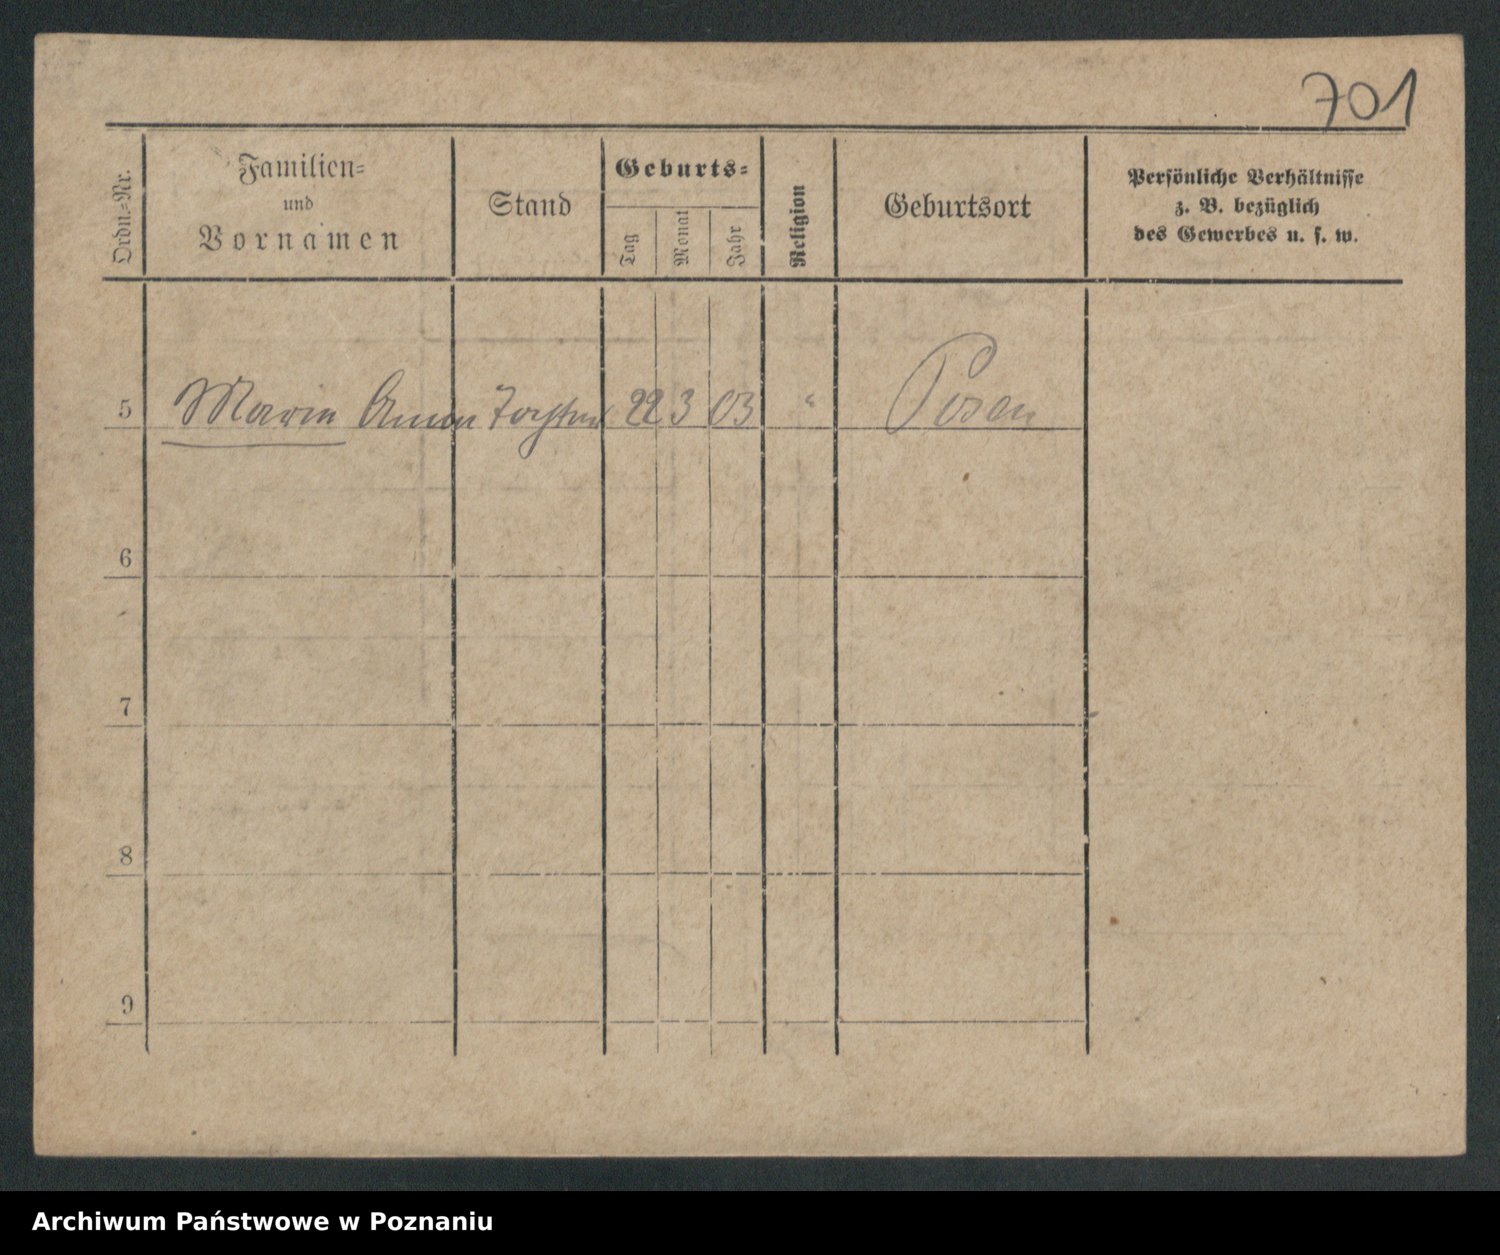 701
Ordn.-Nr.
Familien-
und
Vornamen
Stand
Geburts-
Tag
Monat
Jahr
Religion
Geburtsort
Persönliche Verhältnisse
z. B. bezüglich
des Gewerbes u. s. w.
5 Maria Anna Tochter 22 3 03 " Posen
6
7
8
9
Archiwum Państwowe w Poznaniu